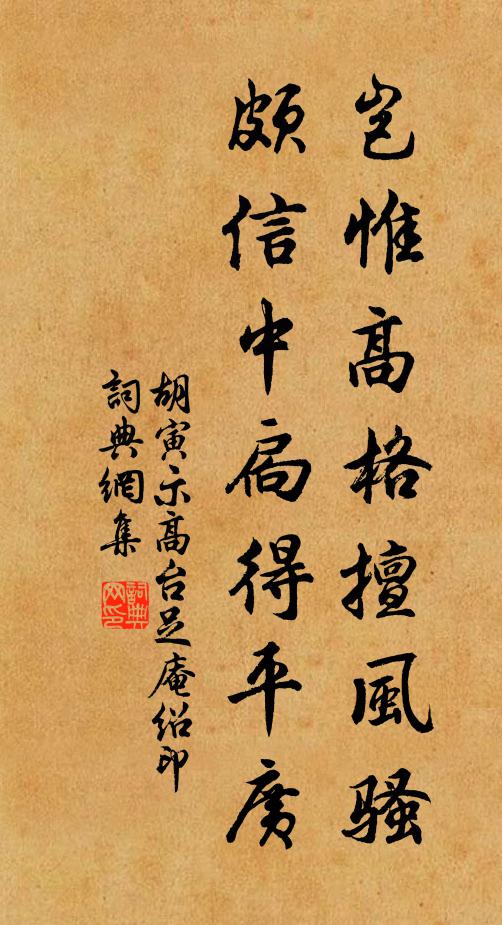 岂惟高格擅风骚
颇信中扃得平广
胡寅示高台足庵绍印
词典网集
词典网印